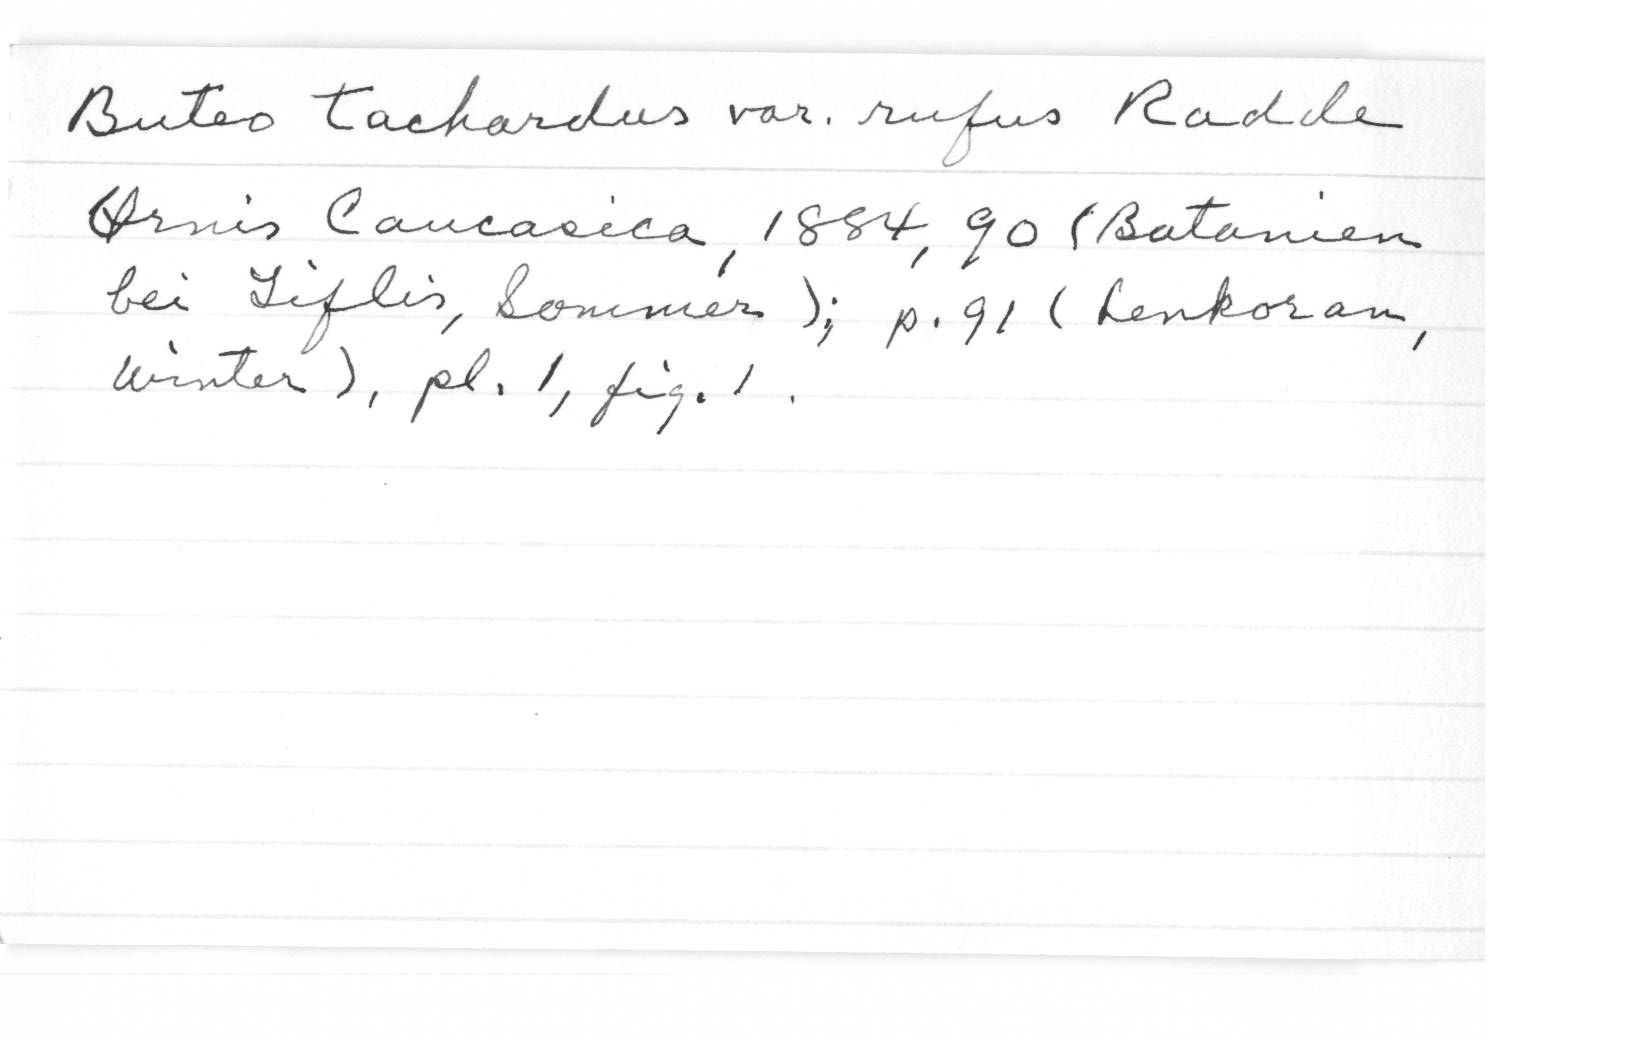 Buteo tachardus var. rufus Radde
Ornis Caucasica, 1884, 90 (Batanien
bei Tiflis, Sommer); p. 91 (Lenkoran,
Winter), pl. 1, fig. 1.